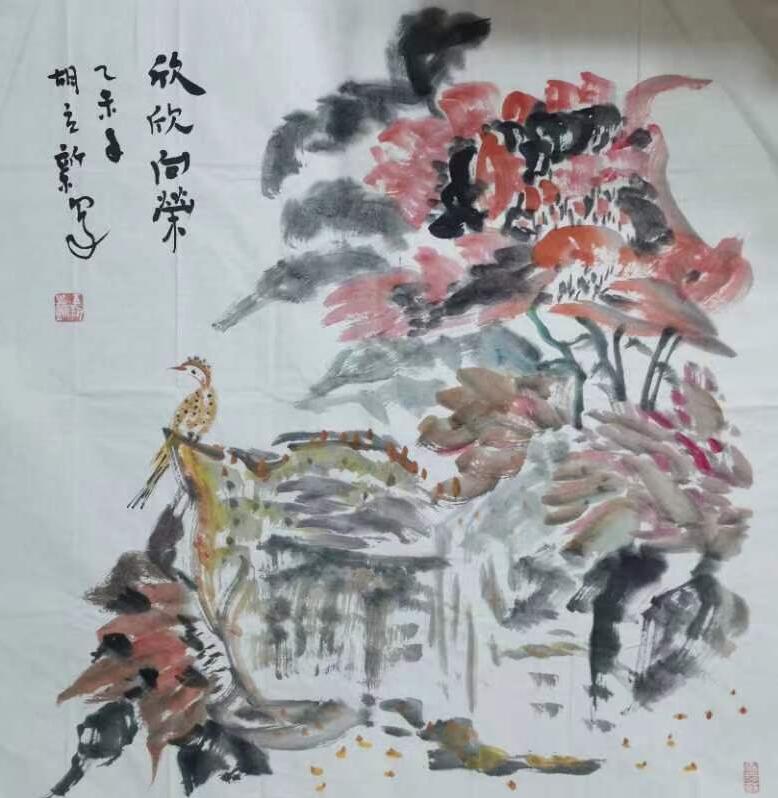 欣欣向荣
乙未年
胡立新写